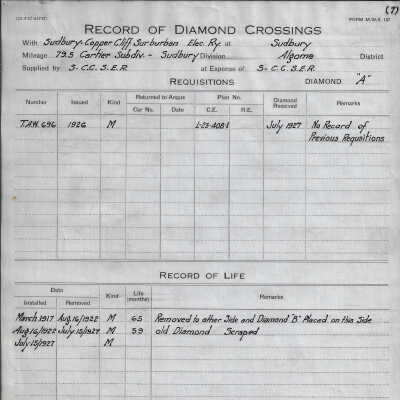 (7)
FORM M.W.S. 137
RECORD OF DIAMOND CROSSINGS
With Sudbury-Copper Cliff Surburban Elec. Ry. at Sudbury
Mileage 79.5 Cartier Subdiv. - Sudbury Division Algoma District
Supplied by S-C.C.S.E.R. at Expense of S-C.C.S.E.R.
REQUISITIONS DIAMOND "A"
Number Issued Kind Returned to Angus Plan No. Diamond Received Remarks
Car No. Date C.E. H.E.
T.A.W. 696 1926 M L-23-408-1 July 1927 No Record of
Previous Requsitions
RECORD OF LIFE
Date Kind Life (months) Remarks
Installed Removed
March 1917 Aug.16/1922 M 65 Removed to other Side and Diamond "B" Placed on this Side
Aug.16/1922 July 15/1927 M 59 old Diamond Scraped
July 15/1927 M